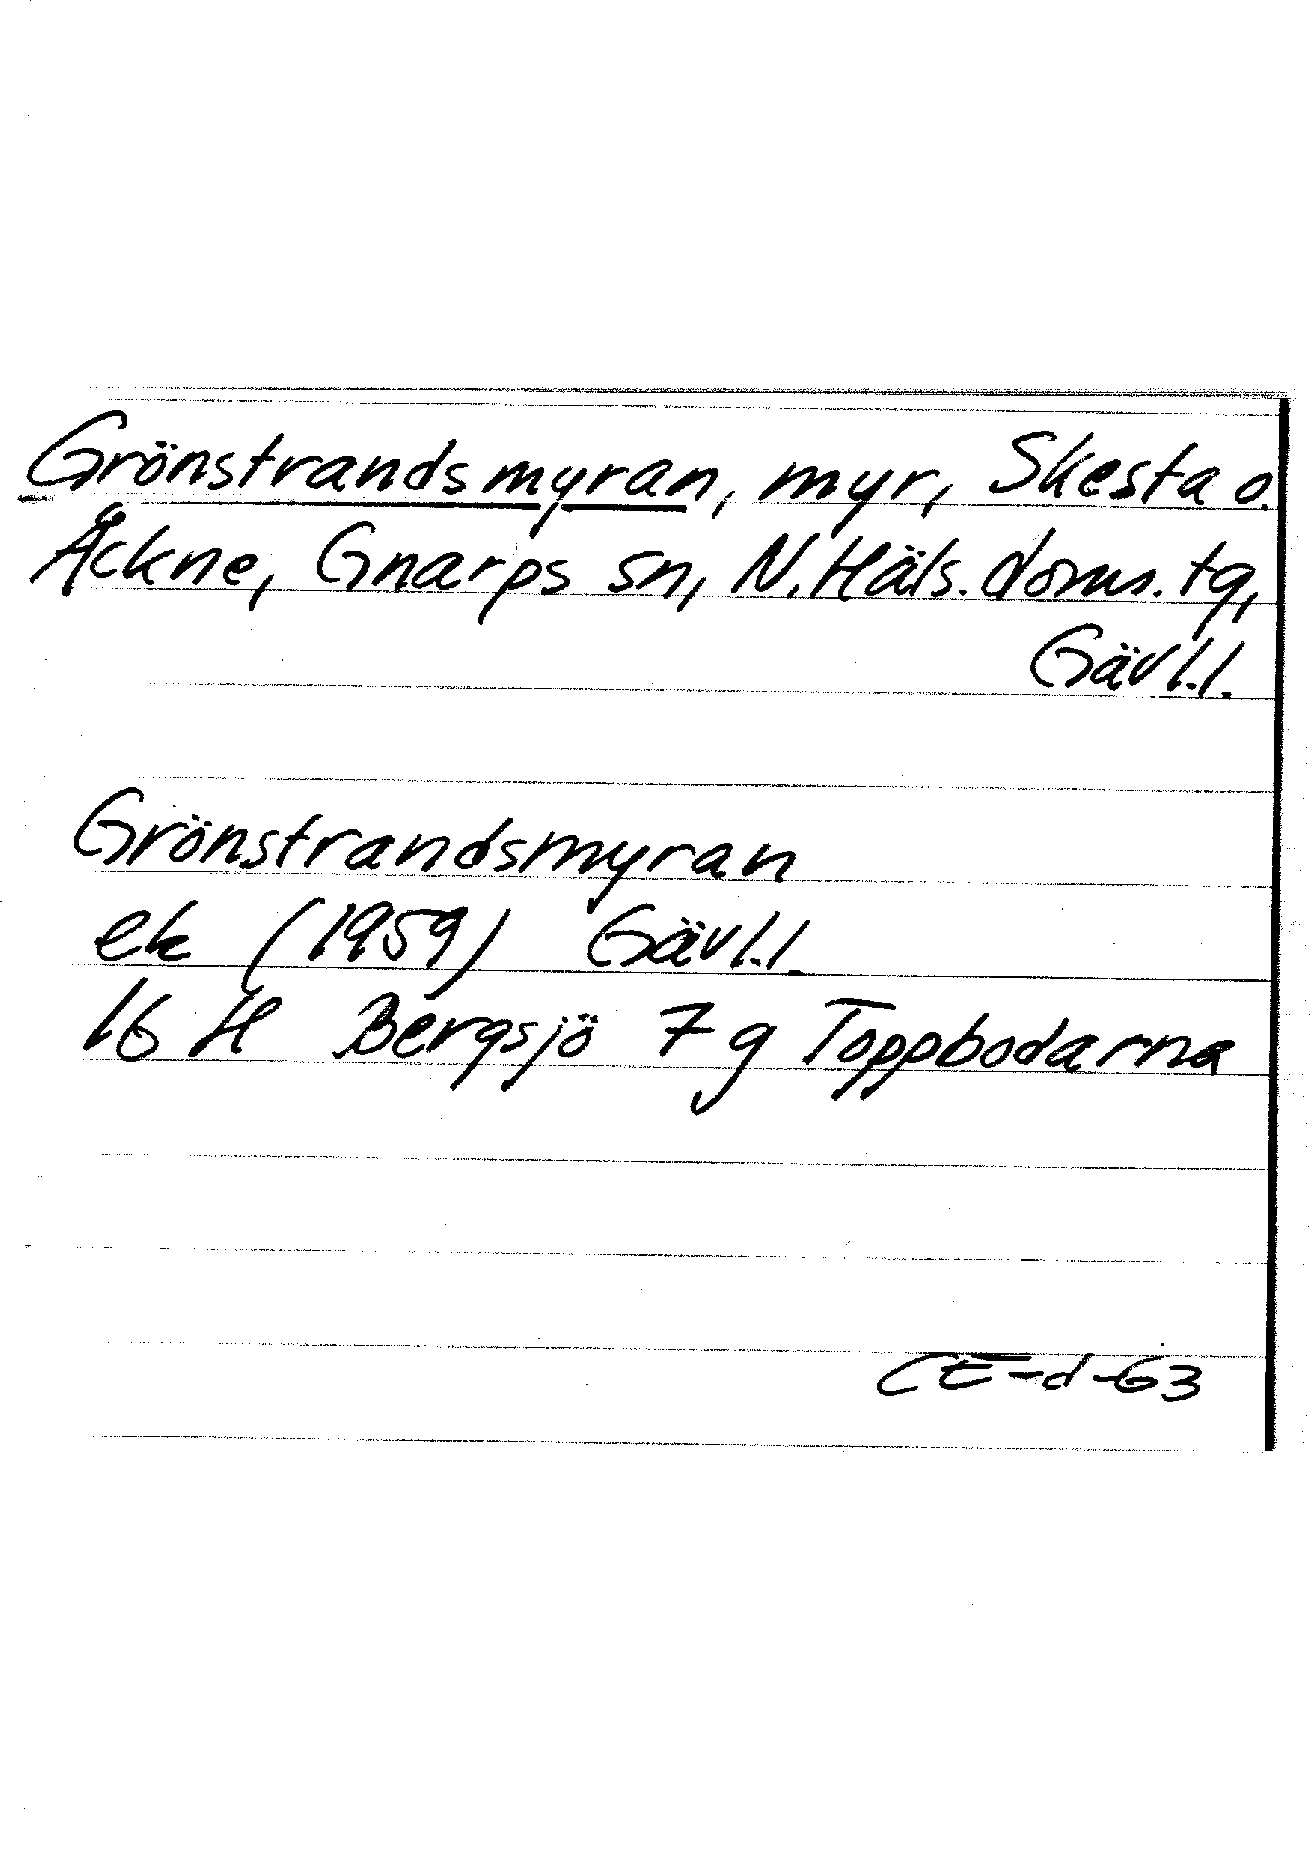 Grönstrandsmyran, myr, Skesta o.
Åckne, Gnarps sn, N. Häls. doms. tg,
Gävl.l.
Grönstrandsmyran
ek (1959) Gävl.l.
16 H Bergsjö 7 g Toppbodarna
CE-d-63